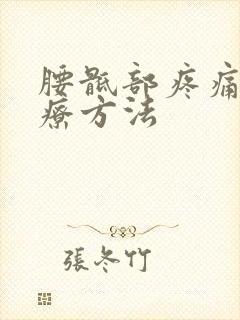 腰骶部疼痛
療方法
張冬竹